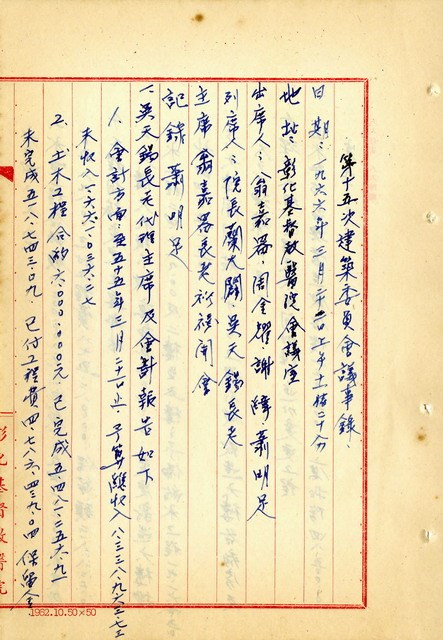 第十五次建築委員會議事錄.
日期:一九六六年三月二十二日上午十一時二十分
地址:彰化基督教醫院會議室
出席人:翁嘉器 周金耀 謝緯 蕭明足
列席人:院長蘭大闢 吳天錫長老
主席 翁嘉器長老祈禱開會
記錄 蕭明足
一、吳天錫長老代理主席及會計報告如下
1. 會計方面:至五十五年三月二十一日止 予算雖收入八.三三八.九六三.七三
未收入一.六六一.〇三六.二七
2. 土木工程合約六.〇〇〇.〇〇〇元 已完成五.四八一.二五六.九一
未完成五一八.七四三.〇九 已付工程費四.七八六.四三九.〇四 保留金
彰化基督教醫院
1962.10.50×50